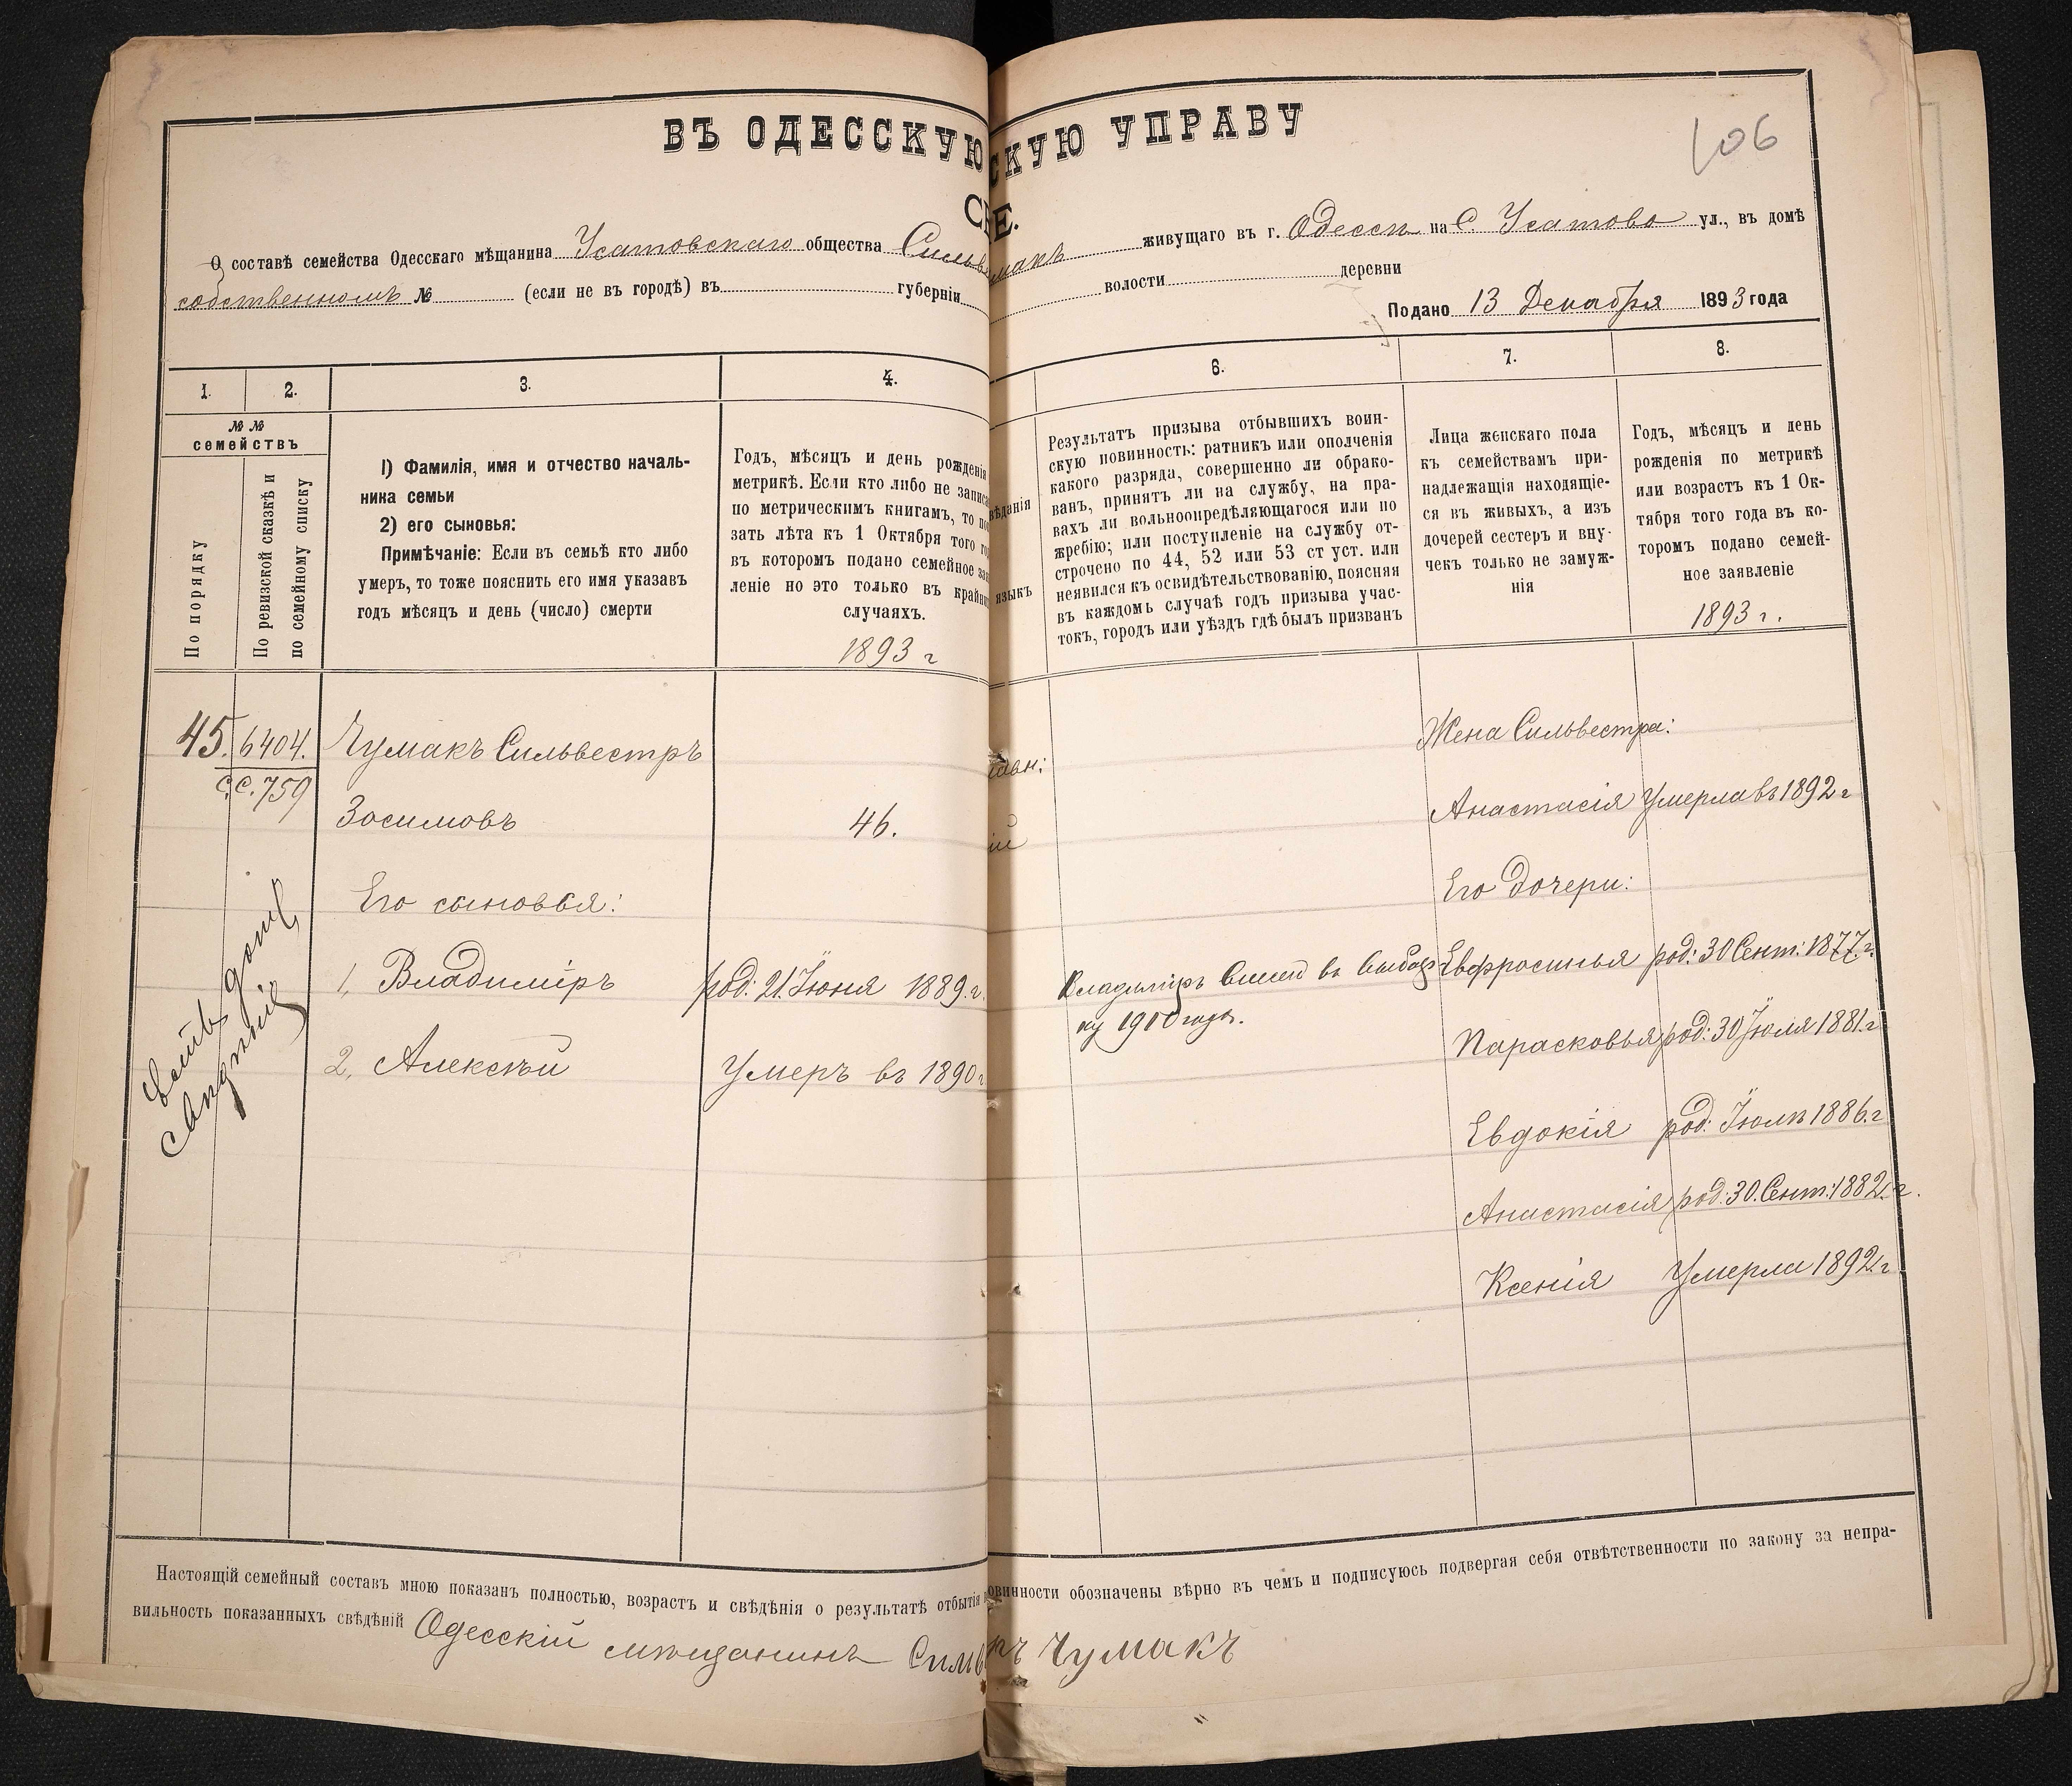 ВЪ ОДЕССКУЮ
СКУЮ УПРАВУ
106
О составѣ семейства Одесскаго мѣщанина Усатовскаго общества Сильве
макъ живущаго въ г. Одессѣ на С. Усатово ул., въ домѣ
собственномъ № (если не въ городѣ) въ губерніи
волости деревни
Подано 13 Декабря 1893 года
1. 2. 3. 4.
6. 7. 8.
№ №
семействъ
По порядку
По ревизской сказкѣ и
по семейному списку
1) Фамилія, имя и отчество началь-
ника семьи
2) его сыновья:
Примѣчаніе: Если въ семьѣ кто либо
умеръ, то тоже пояснить его имя указавъ
годъ мѣсяцъ и день (число) смерти
Годъ, мѣсяцъ и день рожденія
метрикѣ. Если кто либо не записа
по метрическимъ книгамъ, то по
зать лѣта къ 1 Октября того го
въ которомъ подано семейное за
леніе но это только въ крайни
случаяхъ.
1893 г
вѣданія
языкъ
Результатъ призыва отбывшихъ воин-
скую повинность: ратникъ или ополченія
какого разряда, совершенно ли обрако-
ванъ, принятъ ли на службу, на пра-
вахъ ли вольноопредѣляющагося или по
жребію; или поступленіе на службу от-
строчено по 44, 52 или 53 ст уст. или
неявился къ освидѣтельствованію, поясняя
въ каждомъ случаѣ годъ призыва учас-
токъ, городъ или уѣздъ гдѣ былъ призванъ
Лица женскаго пола
къ семействамъ при-
надлежащія находящіе-
ся въ живыхъ, а изъ
дочерей сестеръ и вну-
чекъ только не замуж-
нія
Годъ, мѣсяцъ и день
рожденія по метрикѣ
или возрастъ къ 1 Ок-
тября того года въ ко-
торомъ подано семей-
ное заявленіе
1893 г.
45. 6404. Чумакъ Сильвестръ
с.с. 759
Зосимовъ 46.
Его сыновья:
1, Владиміръ род: 21. Іюня 1889. г.
2, Алексѣй Умеръ въ 1890 г
Есть
славн:
ій
Владиміръ
ку 1910 года.
Жена Сильвестра:
Анастасія Умерла въ 1892 г
Его дочери:
Евфросинья род: 30 Сент: 1877. г.
Парасковья род: 30 Іюля 1881. г
Евдокія род: Іюля 1886. г
Анастасія род: 30. Сент: 1882. г.
Ксенія Умерла 1892. г
Настоящій семейный составъ мною показанъ полностью, возрастъ и свѣдѣнія о результатѣ отбытія
овинности обозначены вѣрно въ чемъ и подписуюсь подвергая себя отвѣтственности по закону за непра-
вильность показанныхъ свѣдѣній Одесскій мѣщанинъ Сильв
ръ Чумакъ